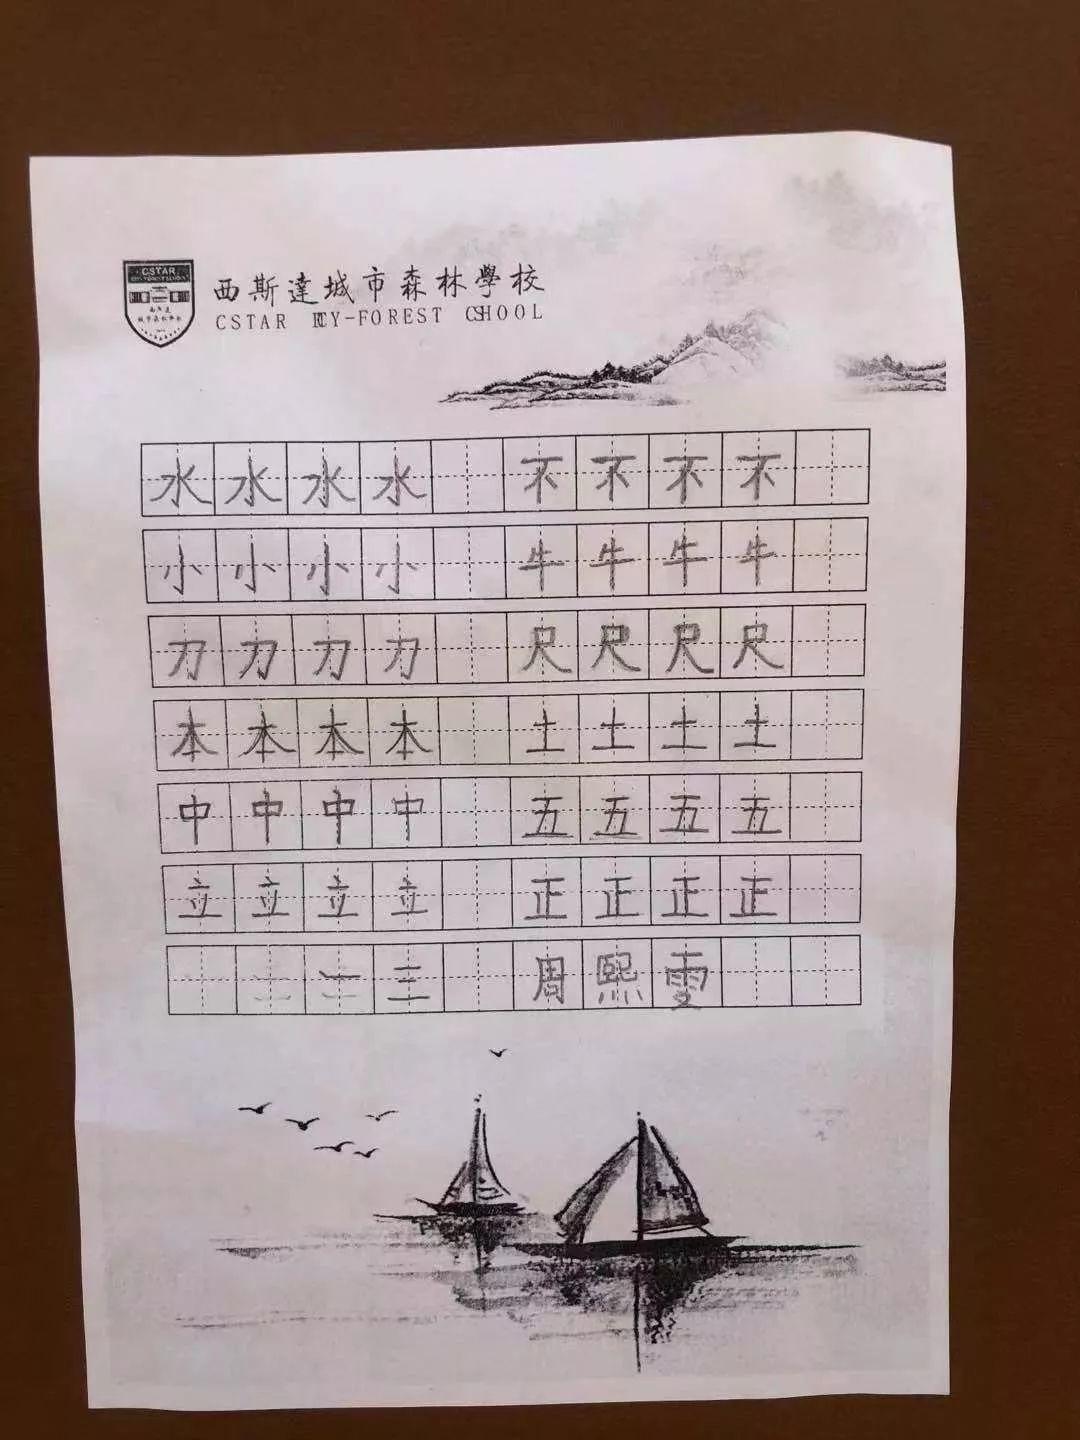 CSTAR
西斯達城市森林學校
CSTAR
水水水水 不不不不
小小小小 牛牛牛牛
刀刀刀刀 尺尺尺尺
本本本本 土土土土
中中中中 五五五五
立立立立 正正正正
二 二 三 周熙雯